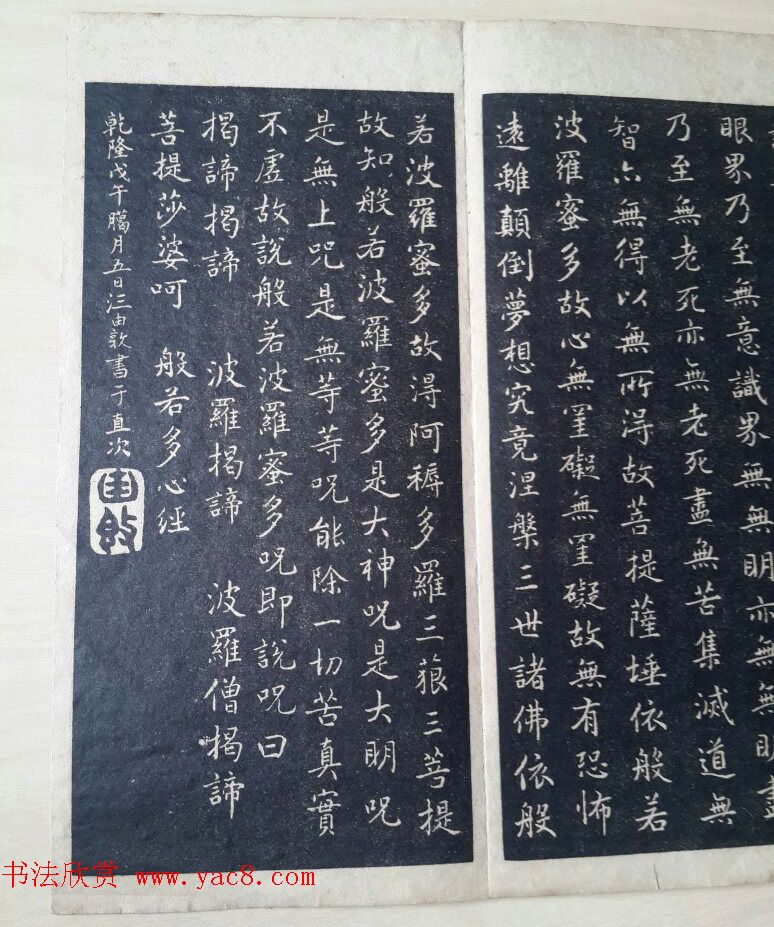 眼界乃至無意識界無無明亦無無明盡
乃至無老死亦無老死盡無苦集滅道無
智亦無得以無所得故菩提薩埵依般若
波羅蜜多故心無罣礙無罣礙故無有恐怖
遠離顛倒夢想究竟涅槃三世諸佛依般
若波羅蜜多故得阿耨多羅三藐三菩提
故知般若波羅蜜多是大神咒是大明咒
是無上咒是無等等咒能除一切苦真實
不虛故說般若波羅蜜多咒即說咒曰
揭諦揭諦 波羅揭諦 波羅僧揭諦
菩提莎婆呵 般若多心經
乾隆戊午臈月五日汪由敦書于直次
由敦
书法欣赏 www.yac8.com